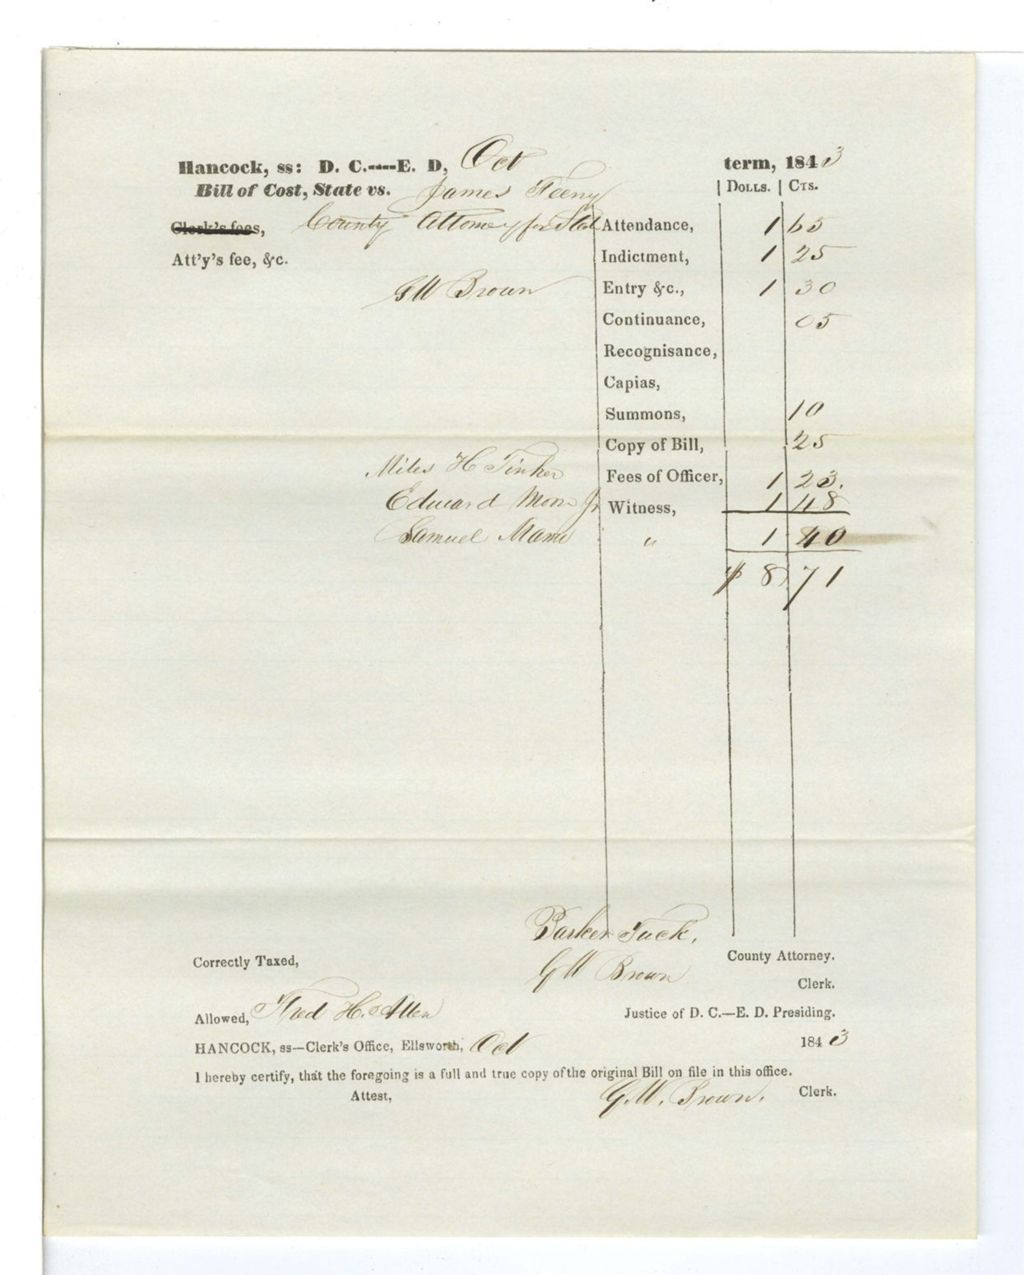 Hancock, ss: D. C.----E. D, Oct term, 1843
Bill of Cost, State vs. James Feeny | Dolls. | Cts.
Clerk's fees, County Attorney for Stat Attendance, 1 65
Att'y's fee, &c. Indictment, 1 25
G W Brown Entry &c., 1 30
Continuance, 05
Recognisance,
Capias,
Summons, 10
Copy of Bill, 25
Miles H Tinker Fees of Officer, 1 23.
Edward Moon Jr Witness, 1 48
Samuel " 1 40
$ 8 71
Parker Tuck,
Correctly Taxed, County Attorney.
G W Brown Clerk.
Allowed, Fred H. Allen Justice of D. C.—E. D. Presiding.
HANCOCK, ss—Clerk's Office, Ellsworth, Oct 1843
I hereby certify, that the foregoing is a full and true copy of the original Bill on file in this office.
Attest, G. W. Brown. Clerk.